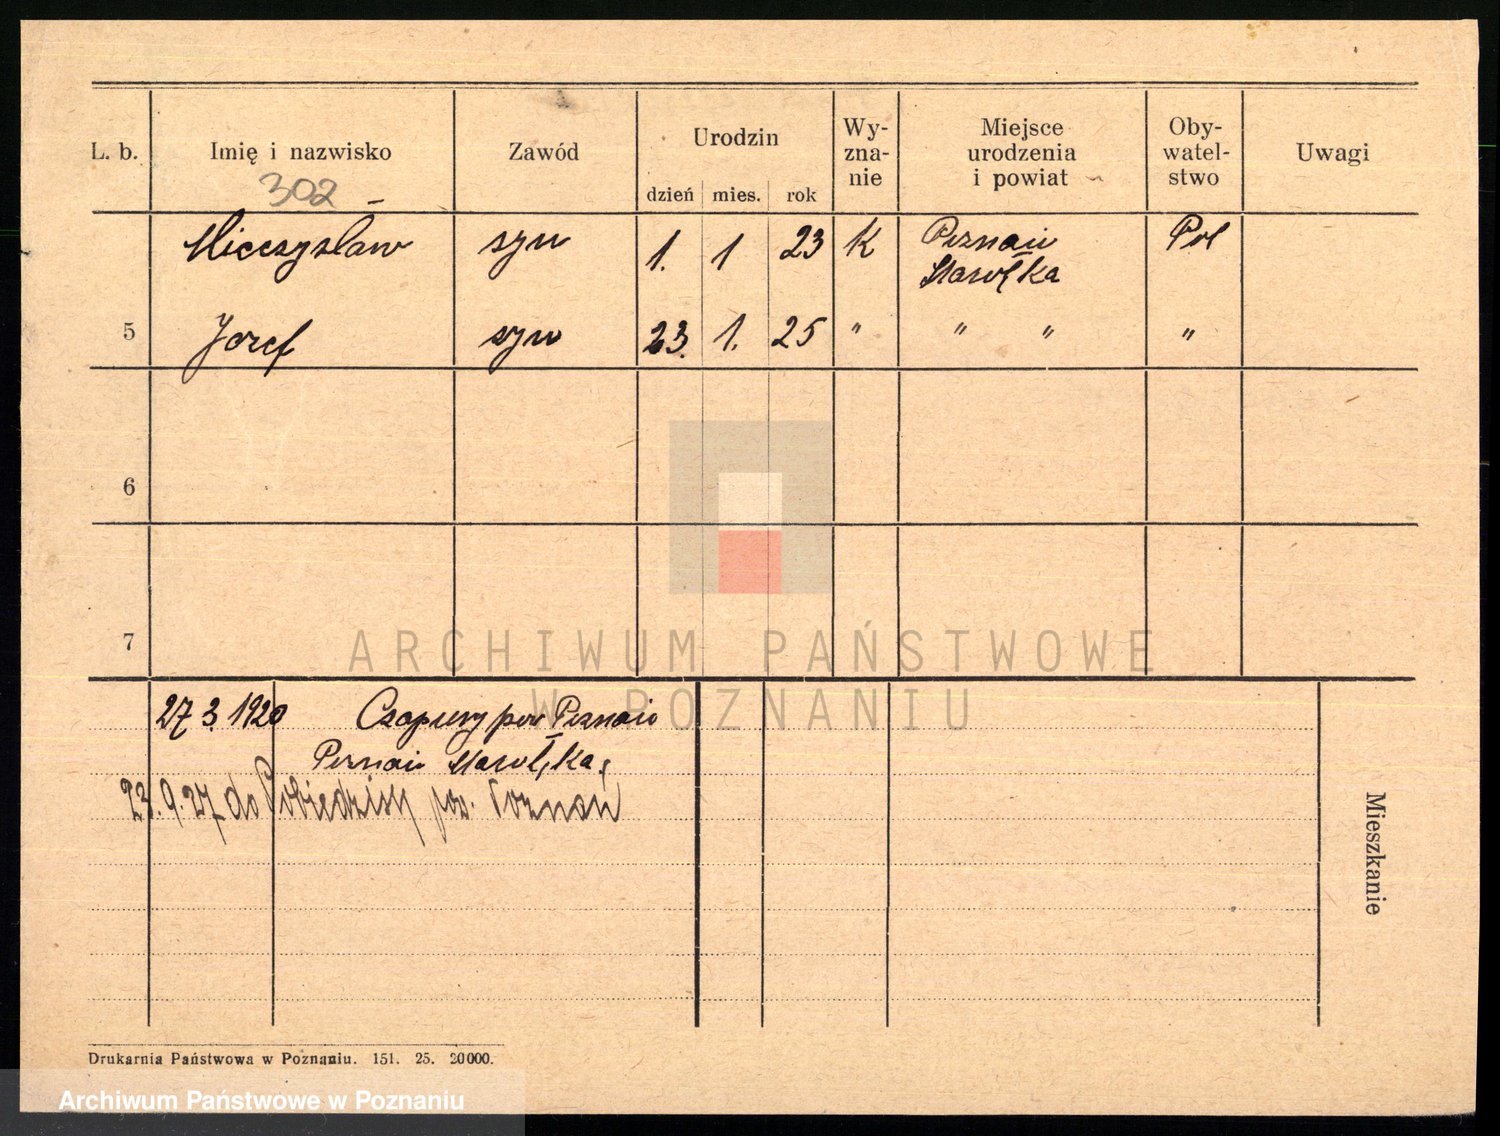 L. b. Imię i nazwisko Zawód Urodzin dzień mies. rok Wy-zna-nie Miejsce urodzenia i powiat Oby-watel-stwo Uwagi
302
Mieczysław syn 1. 1 23 K Poznań Pol
Starołęka
5 Jozef syn 23. 1. 25 " " " "
6
7
ARCHIWUM PAŃSTWOWE
W POZNANIU
27 3. 1920 Czapury pow Poznań
Poznań Starołęka
23.9.27 do Pobiedzisk pow. Poznań
Mieszkanie
Drukarnia Państwowa w Poznaniu. 151. 25. 20000.
Archiwum Państwowe w Poznaniu